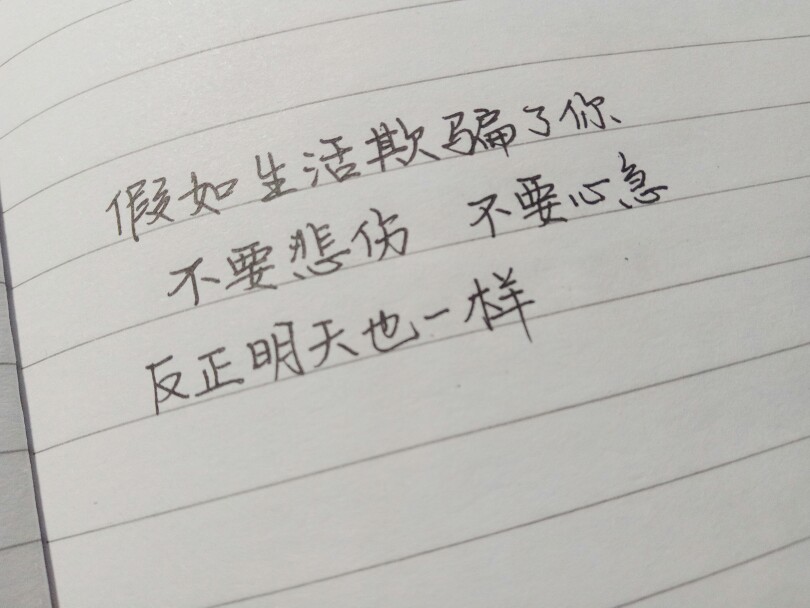 假如生活欺骗了你
不要悲伤 不要心急
反正明天也一样